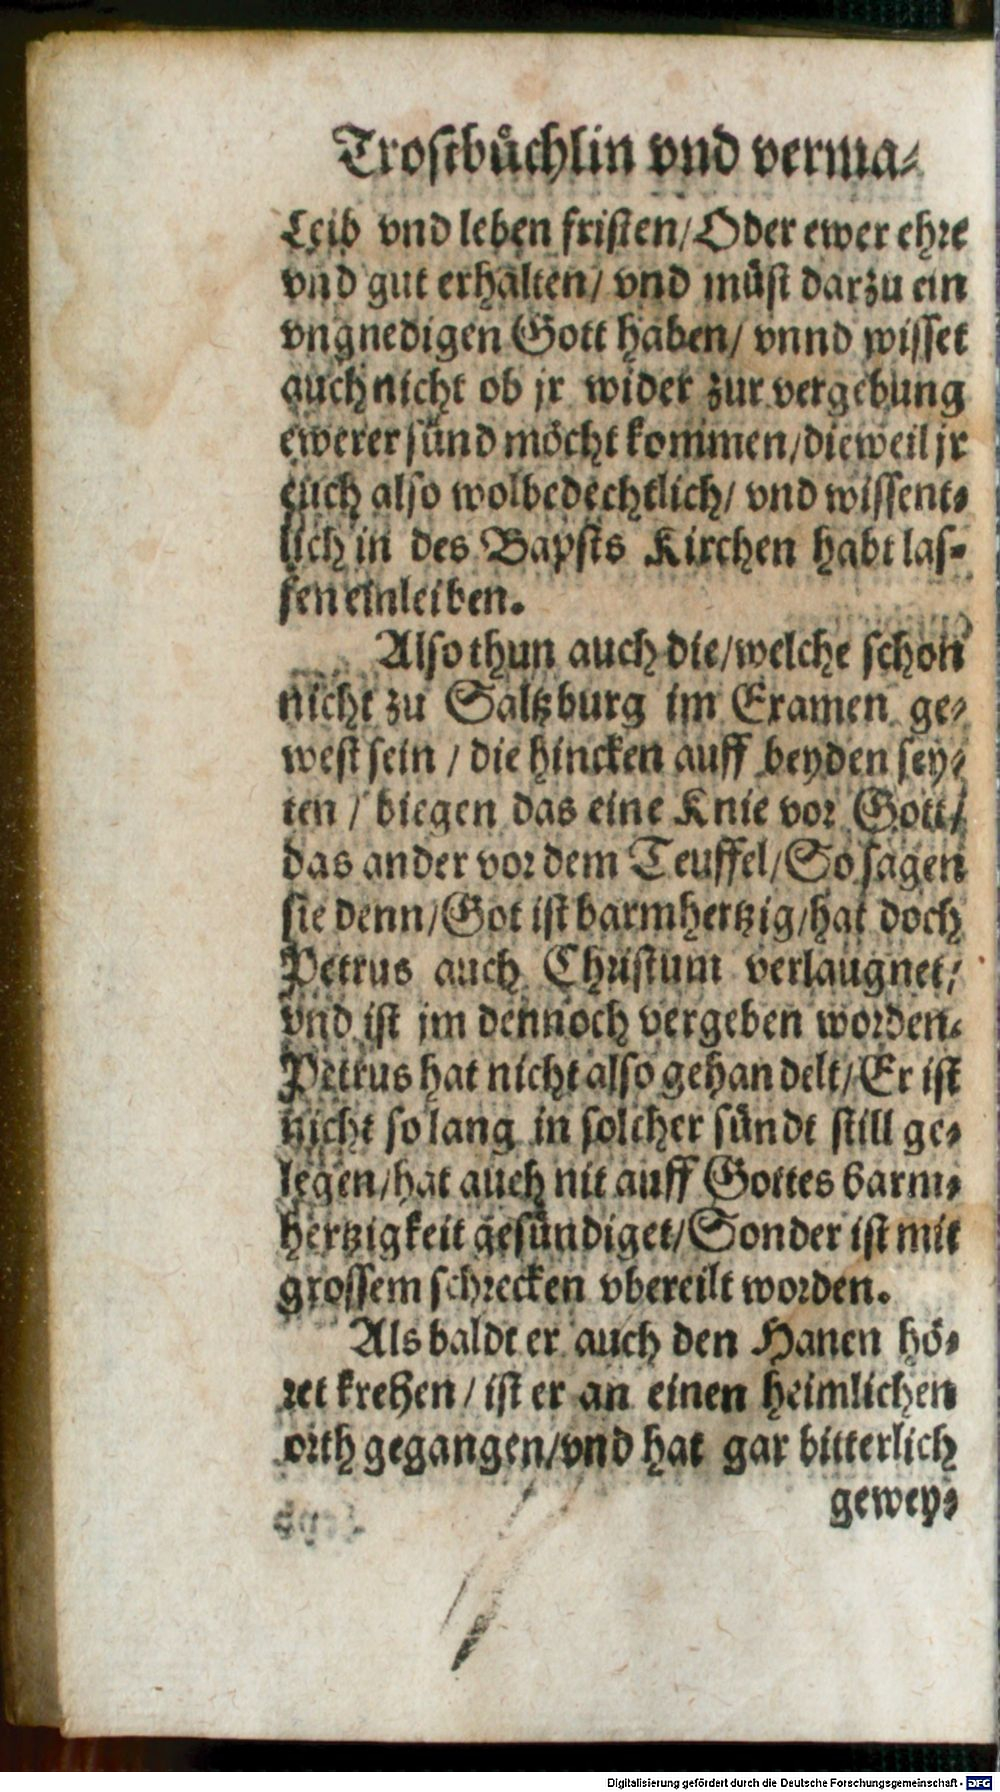 Trostbuͤchlin vnd verma⸗
Leib vnd leben fristen/Oder ewer ehre
vnd gut erhalten/ vnd müst darzu ein
vngnedigen Gott haben/ vnnd wisset
auch nicht ob jr wider zur vergebung
ewerer sünd möcht kommen/dieweil jr
euch also wolbedechtlich/ vnd wissent⸗
lich in des Bapsts Kirchen habt las⸗
sen einleiben.
Also thun auch die/welche schon
nicht zu Saltzburg im Examen ge⸗
west sein / die hincken auff beyden sey⸗
ten / biegen das eine Knie vor Gott/
das ander vor dem Teuffel/So sagen
sie denn/Got ist barmhertzig/hat doch
Petrus auch Christum verlaugnet/
vnd ist jm dennoch vergeben worden.
Petrus hat nicht also gehandelt/Er ist
nicht so lang in solcher sündt still ge⸗
legen/hat auch nit auff Gottes barm⸗
hertzigkeit gesündiget/Sonder ist mit
grossem schrecken vbereilt worden.
Als baldt er auch den Hanen hö⸗
ret krehen/ ist er an einen heimlichen
orth gegangen/vnd hat gar bitterlich
gewey⸗
Digitalisierung gefördert durch die Deutsche Forschungsgemeinschaft - DFG